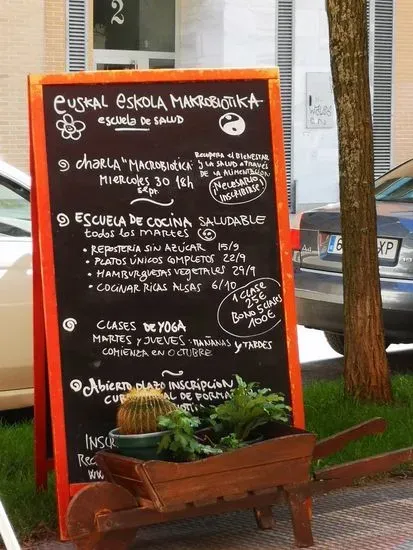 2
EUSKAL ESKOLA MAKROBIOTIKA
ESCUELA DE SALUD
CHARLA "MACROBIOTICA"
MIERCOLES 30 18h
SEPT.
RECUPERA EL BIENESTAR
Y LA SALUD A TRAVES
DE LA ALIMENTACION
NECESARIO
INSCRIBIRSE
ESCUELA DE COCINA SALUDABLE
todos los martes
• REPOSTERIA SIN AZÚCAR 15/9
• PLATOS ÚNICOS COMPLETOS 22/9
• HAMBURGUESAS VEGETALES 29/9
• COCINAR RICAS ALGAS 6/10
1 CLASE
25€
BONO 5 CLASES
100€
CLASES DE YOGA
MARTES Y JUEVES: MAÑANAS Y TARDES
COMIENZA EN OCTUBRE
ABIERTO PLAZO INSCRIPCIÓN
DE FORMA
INSC